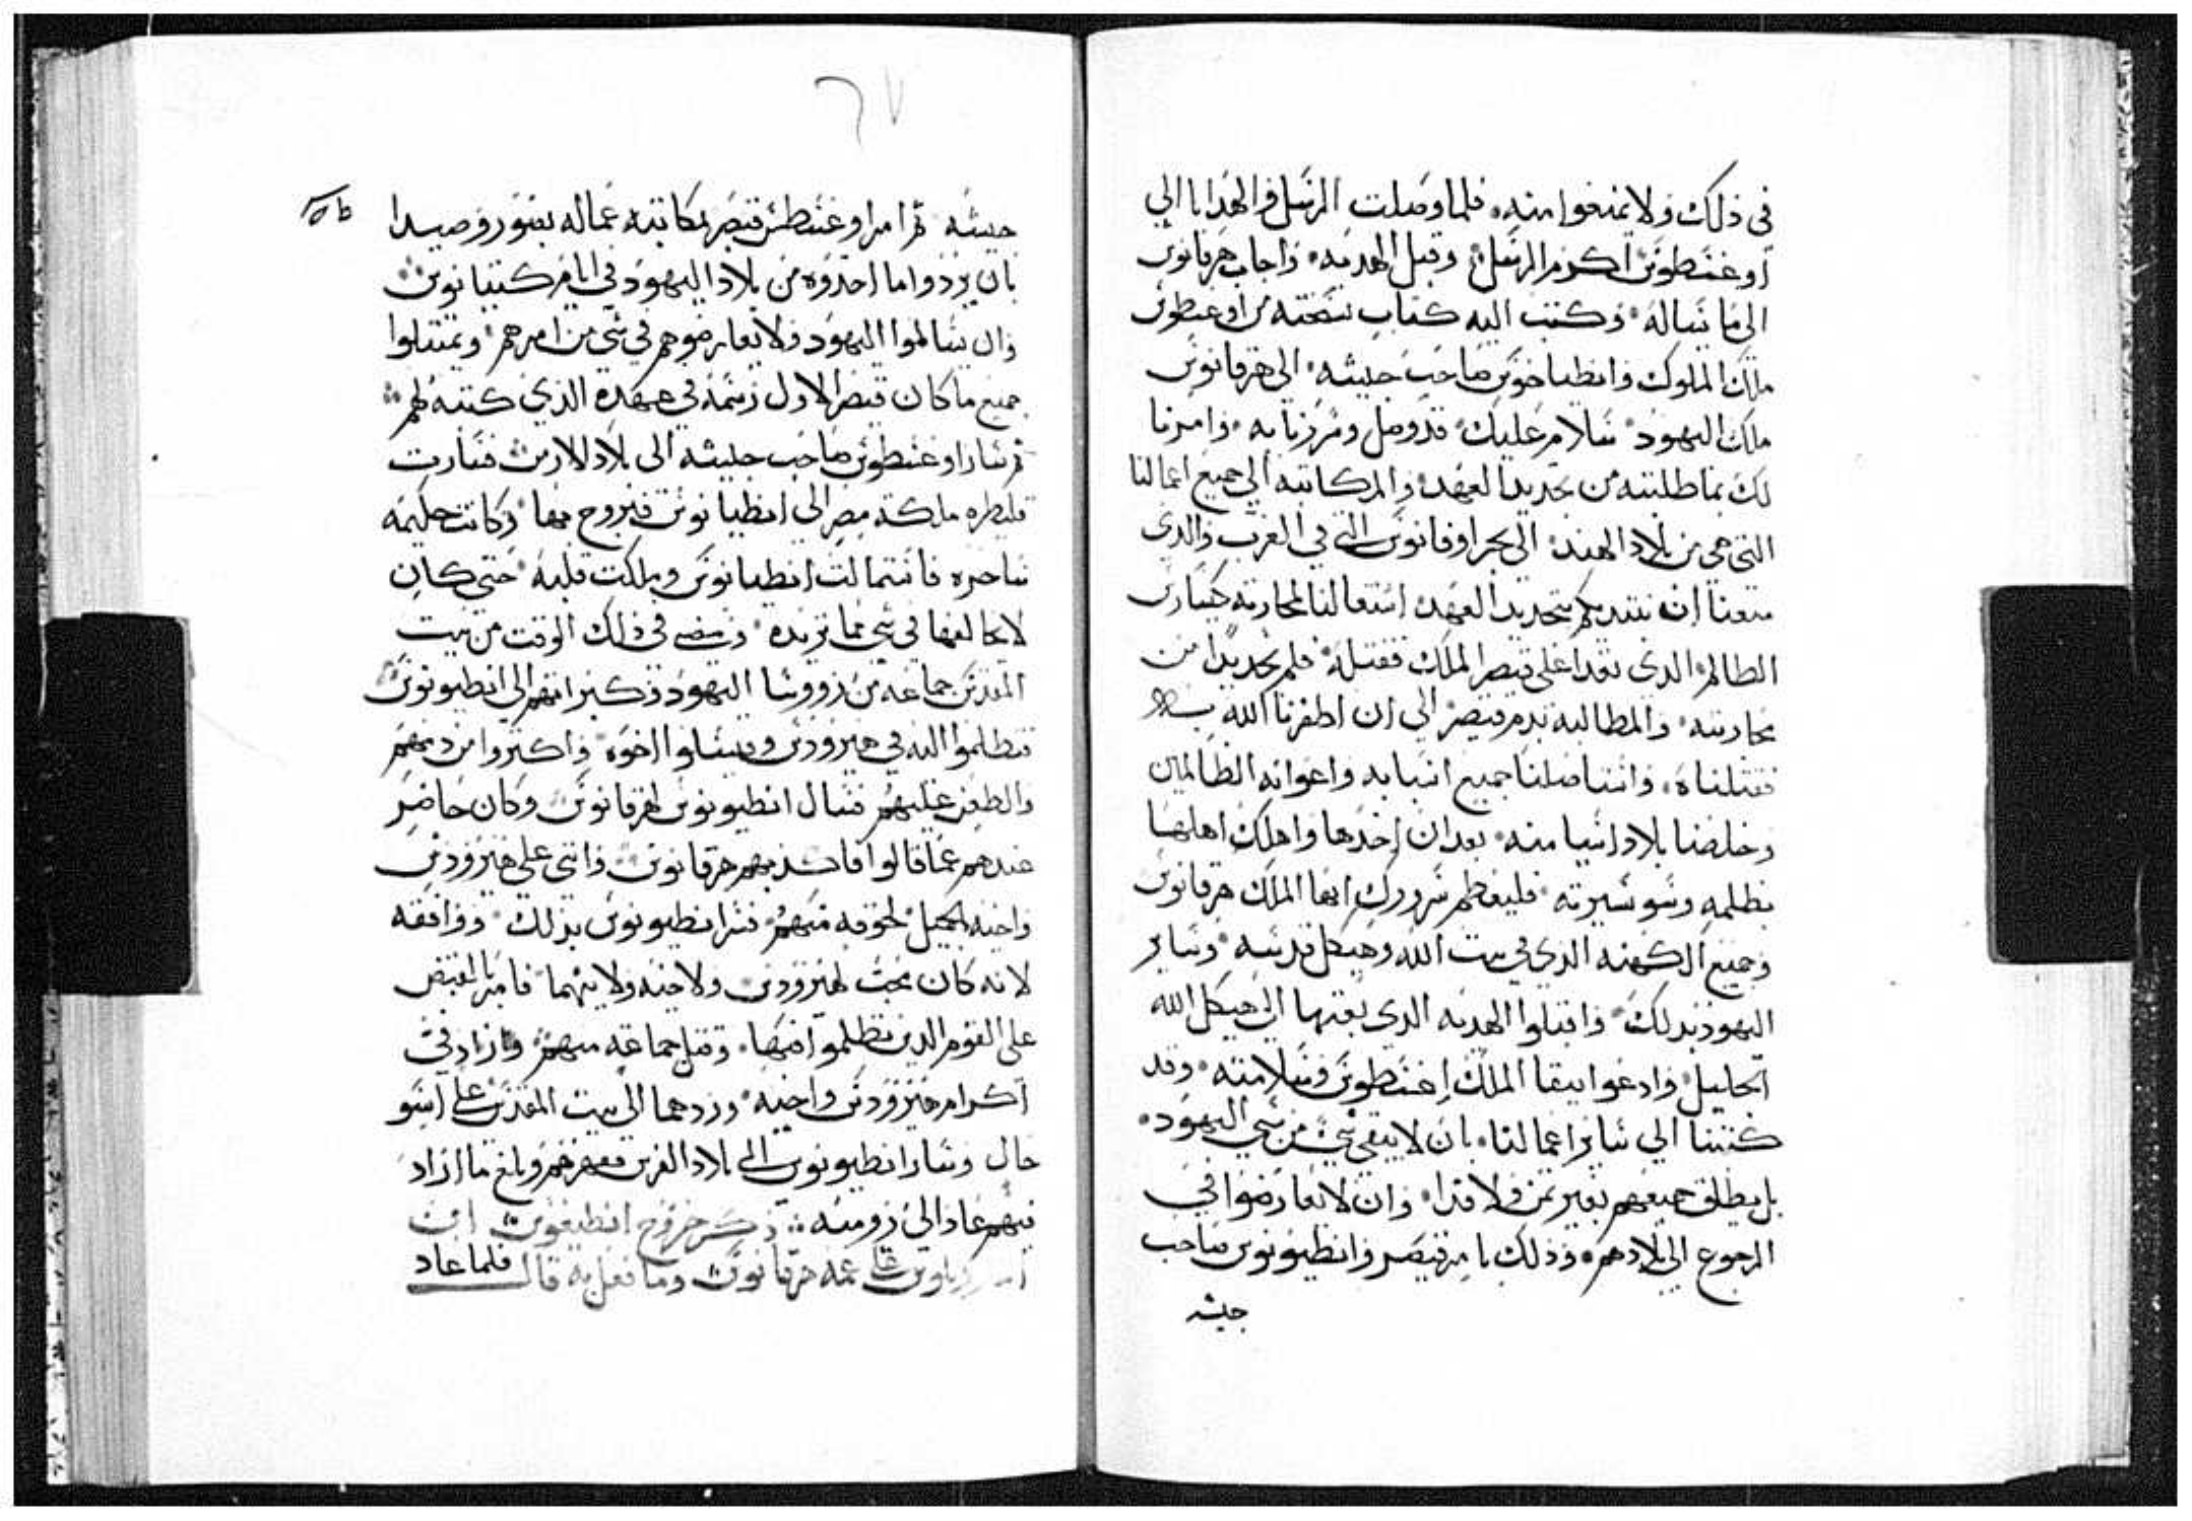 في ذلك ولا يمنعوا منه فلما وصلت الرسل والهدايا الي
اوغسطوس اكرم الرسل وقبل الهديه واجاب هرقانوس
الى ما ساله وكتب اليه كتاب نسخته من اوغسطوس
ملك الملوك وانطياخوس صاحب جيشه الى هرقانوس
ملك اليهود سلام عليك قد وصل وسررنا به وامرنا
لك بما طلبته من تجديد العهد والمكاتبه الي جميع اعمالنا
التي هي من بلاد الهند الى بحر اوقانوس التي في الغرب والدي
منعنا ان نبتديكم بتجديد العهد اشتغالنا لمحاربة كسيارس
الظالم الدي تعدا على قيصر الملك فقتله فلم نجد بدا من
محاربته والمطالبه بدم قيصر الى ان اظفرنا الله به
فقتلناه واستاصلنا جميع اسبابه واعوانه الظالمين
وخلصنا بلاد اسيا منه بعد ان اخدها واهلك اهلها
بظلمه وسو سيرته فليعظم سرورك ايها الملك هرقانوس
وجميع الكهنه الدي في بيت الله وهيكل قدسه وساير
اليهود بدلك واقبلوا الهديه الدي بعتها الى هيكل الله
الجليل وادعوا ببقا الملك اغسطوس وسلامته وقد
كتبنا الى ساير اعمالنا بان لا يبقى شي من سبي اليهود
بل يطلق جميعهم بغير تمن ولا فدا وان لا يعارضوا في
الرجوع الى بلادهم وذلك بامر قيصر وانطيونوس صاحب
جيشه
٦٧
١٥٢
جيشه تم امر اوغسطس قيصر بمكاتبة عماله بصور وصيدا
بان يردوا ما اخدوه من بلاد اليهود في ايام كسيانوس
وان يسالموا اليهود ولا يعارضوهم في شي من امرهم ويمتتلوا
جميع ما كان قيصر الاول رسمه في عهده الذي كتبه لهم
تم سار اوغسطوس صاحب جيشه الى بلاد الارمن فسارت
قليطره ملكة مصر الى انطيانوس فتزوج بها وكانت حكيمه
ساحره فاستمالت انطيانوس وملكت قلبه حتى كان
لا يخالفها في شي مما تريده ومضى في ذلك الوقت من بيت
المقدس جماعه من رووسا اليهود وكبرايهم الى انطيونوس
فتظلموا اليه في هيرودس وفسيلوا اخوه واكتروا من دمهم
والطعن عليهم فسال انطيونوس لهرقانوس وكان حاضر
عندهم عما قالوا فاكدبهم هرقانوس واتنى على هيرودس
واخيه بالجميل لخوفه منهم فسر انطيونوس بدلك ووافقه
لانه كان يحب لهيرودس ولاخيه ولابيهما فامر بالقبض
على القوم الدين تظلموا فيهما وقتل جماعه منهم وزاد في
اكرام هيرودس واخيه وردهما الى بيت المقدس على اسو
حال وسار انطيونوس الى بلاد الفرس فقهرهم وبلغ ما اراد
فيهم عاد الى روميه ذكر خروج انطيغوس ابن
على عمه هرقانوس وما فعل به قال فلما عاد